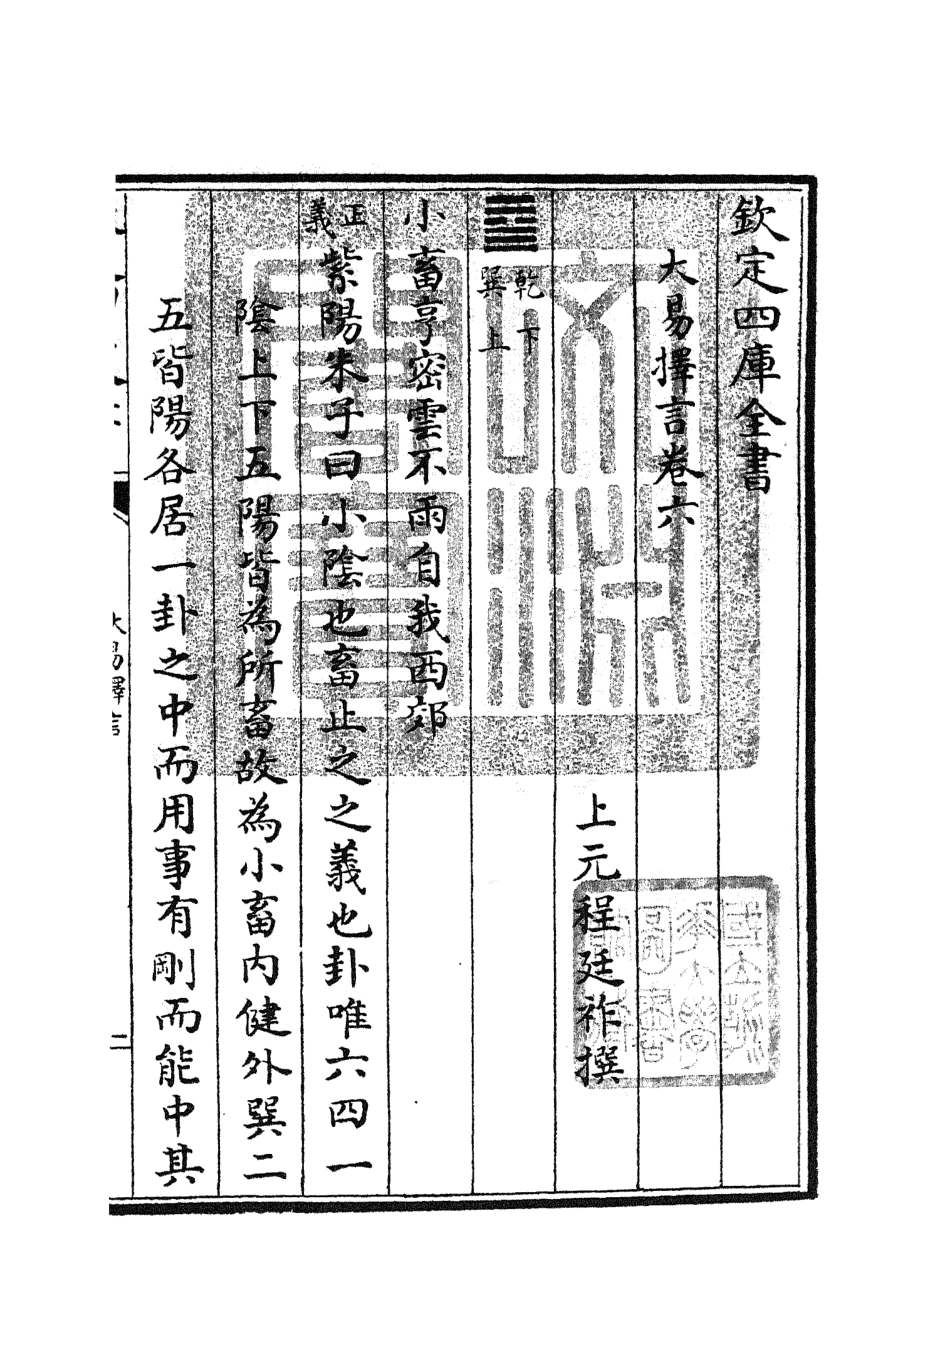 欽定四庫全書
大易擇言卷六
上元程廷祚撰
䷈
乾下
巽上
小畜亨密雲不雨自我西郊
正義
紫陽朱子曰小陰也畜止之之義也卦唯六四一
陰上下五陽皆為所畜故為小畜內健外巽二
五皆陽各居一卦之中而用事有剛而能中其
大易擇言